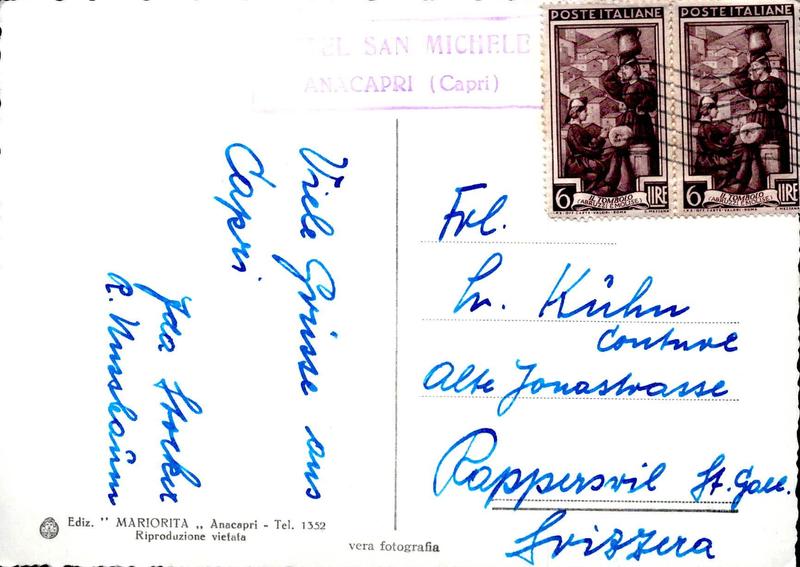 TEL SAN MICHELE
ANACAPRI (Capri)
POSTE ITALIANE
6 LIRE
IL TOMBOLO
(ABRUZZI E MOLISE)
I.P.S. OFF. CARTE-VALORI - ROMA
POSTE ITALIANE
6 LIRE
IL TOMBOLO
(ABRUZZI E MOLISE)
I.P.S. OFF. CARTE-VALORI - ROMA
Viele Grüsse aus
Capri
Ida Stocker
R. Nussbaum
Frl.
Kühn
Couture
Alte Jonastrasse
Rapperswil St. Gall.
Svizzera
Ediz. " MARIORITA „ Anacapri - Tel. 1352
Riproduzione vietata
vera fotografia